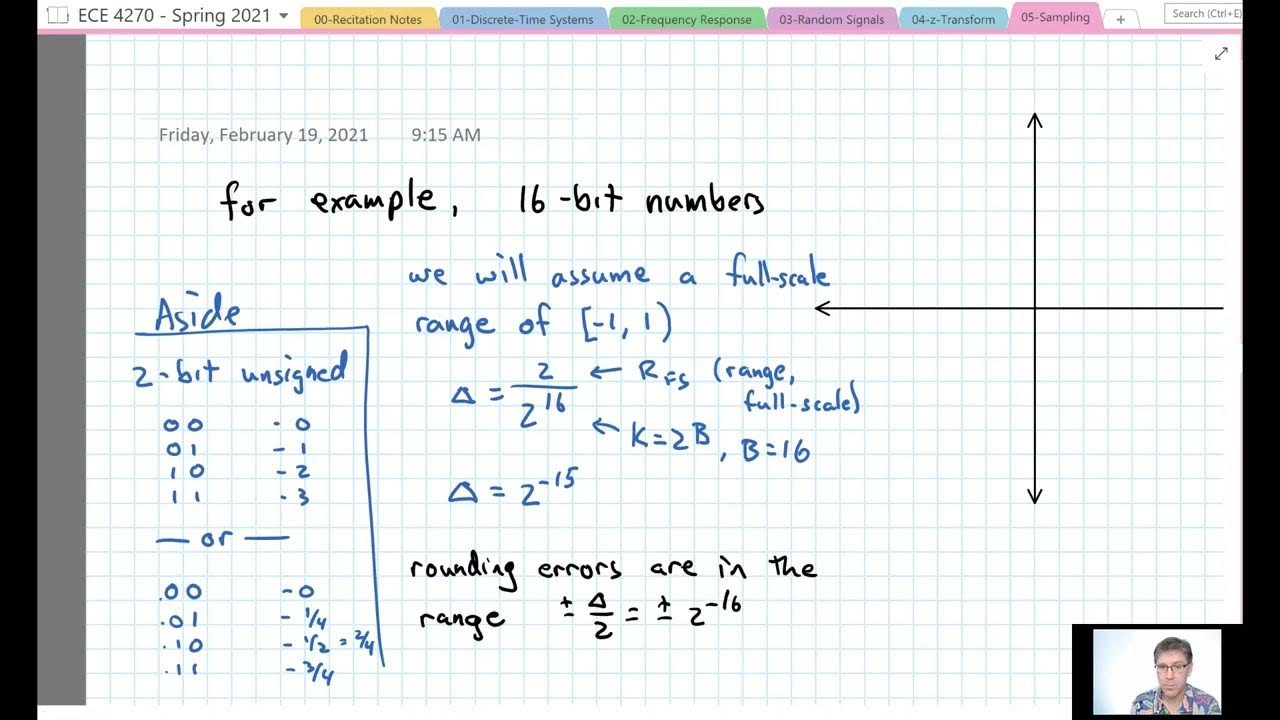 ECE 4270 - Spring 2021
00-Recitation Notes
01-Discrete-Time Systems
02-Frequency Response
03-Random Signals
04-z-Transform
05-Sampling
+
Search (Ctrl+E)
Friday, February 19, 2021 9:15 AM
for example, 16-bit numbers
we will assume a full-scale
range of [-1, 1)
Δ = 2 / 2^16 ← R_FS (range, full-scale)
← K=2^B, B=16
Δ = 2^-15
rounding errors are in the
range ± Δ/2 = ± 2^-16
Aside
2-bit unsigned
00 - 0
01 - 1
10 - 2
11 - 3
— or —
.00 - 0
.01 - 1/4
.10 - 1/2 = 2/4
.11 - 3/4